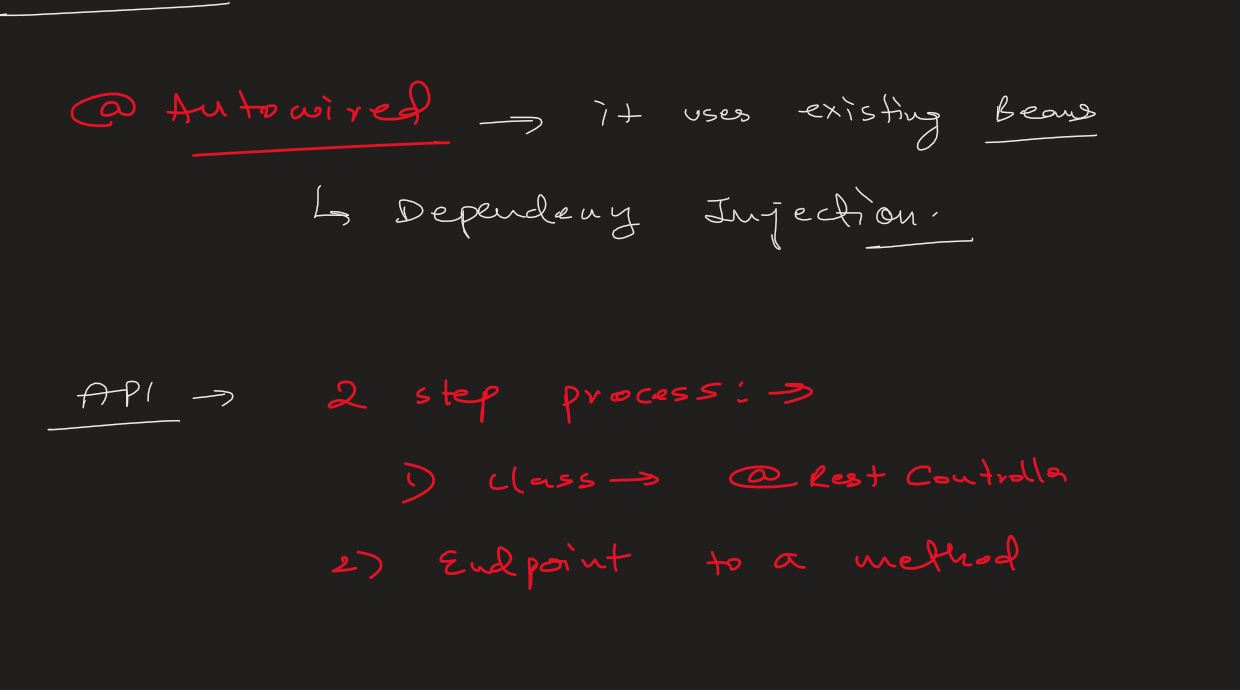 @ Autowired → it uses existing Beans
↳ Dependency Injection.
API → 2 step process: →
1) class → @ Rest Controller
2) Endpoint to a method